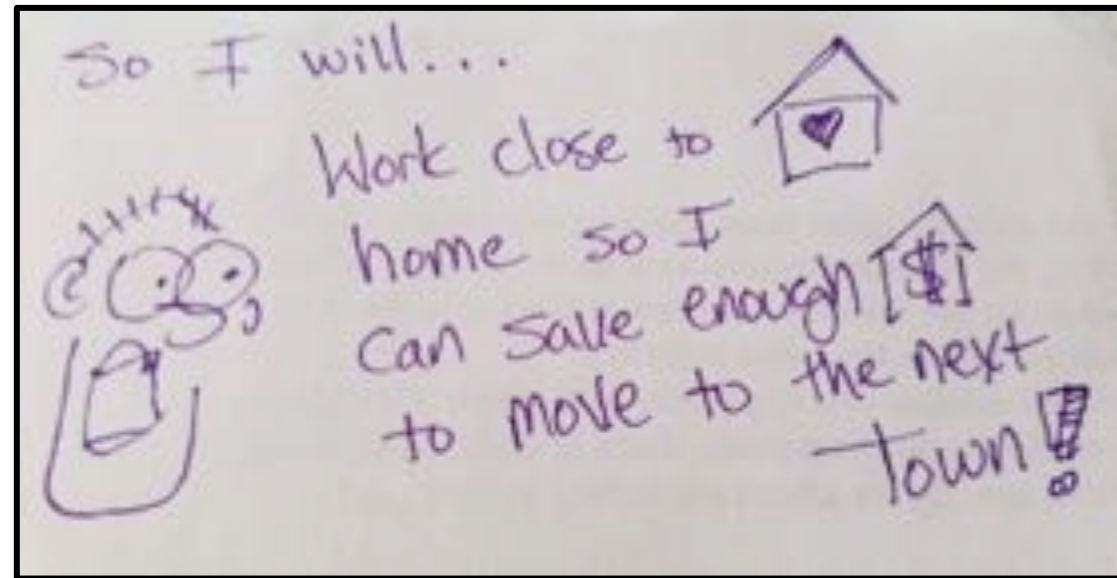 So I will...
Work close to
home so I
can save enough [$]
to move to the next
Town!